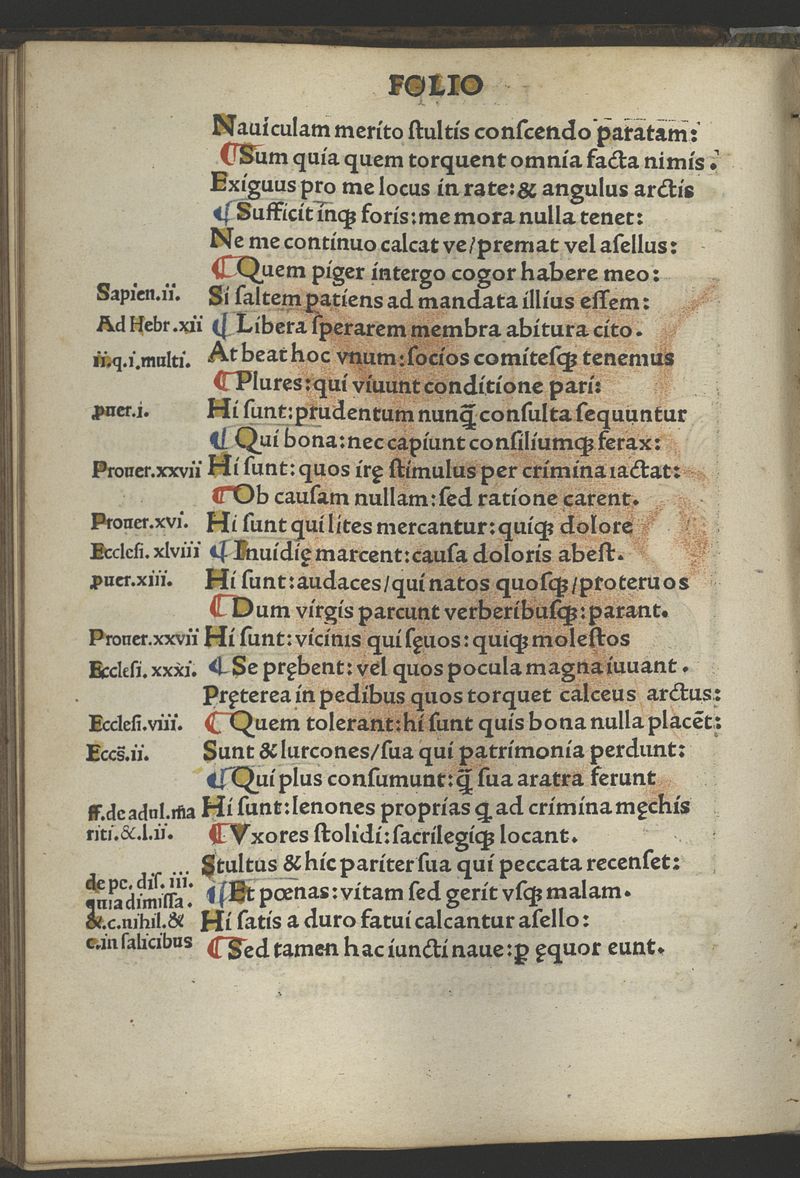 FOLIO
Nauiculam merito ſtultis conſcendo paratam:
¶Sum quia quem torquent omnia facta nimis.
Exiguus pro me locus in rate:& angulus arctis
¶Sufficit inqꝫ foris:me mora nulla tenet:
Ne me continuo calcat ve/premat vel aſellus:
¶Quem piger intergo cogor habere meo:
Sapien.ii. Si ſaltem patiens ad mandata illius eſſem:
Ad Hebr.xii ¶Libera ſperarem membra abitura cito.
ii.q.i.multi. At beat hoc vnum:ſocios comiteſqꝫ tenemus
¶Plures:qui viuunt conditione pari:
ꝓuer.i. Hi ſunt:prudentum nunq̃ conſulta ſequuntur
¶Qui bona:nec capiunt conſiliumqꝫ ferax:
Prouer.xxvii Hi ſunt:quos irę ſtimulus per crimina iactat:
¶Ob cauſam nullam:ſed ratione carent.
Prouer.xvi. Hi ſunt qui lites mercantur:quiqꝫ dolore
Eccleſi.xlviii ¶Inuidię marcent:cauſa doloris abeſt.
ꝓuer.xiii. Hi ſunt:audaces/qui natos quoſqꝫ/proteruos
¶Dum virgis parcunt verberibuſqꝫ:parant.
Prouer.xxvii Hi ſunt:vicinis qui ſęuos:quiqꝫ moleſtos
Eccleſi.xxxi. ¶Se prębent:vel quos pocula magna iuuant.
Pręterea in pedibus quos torquet calceus arctus:
Eccleſi.viii. ¶Quem tolerant:hi ſunt quis bona nulla placẽt:
Eccs̃.ii. Sunt & lurcones/ſua qui patrimonia perdunt:
¶Qui plus conſumunt:q̃ ſua aratra ferunt
ff.de adul.m̃a Hi ſunt:lenones proprias q ad crimina męchis
riti.&.l.ii. ¶Vxores ſtolidi:ſacrilegiqꝫ locant.
Stultus & hic pariter ſua qui peccata recenſet:
de pe. diſ. iii.
quia dimiſſa. ¶Et pœnas:vitam ſed gerit vſqꝫ malam.
&.c.nihil.& Hi ſatis a duro fatui calcantur aſello:
c.in ſalicibus ¶Sed tamen hac iuncti naue:ꝑ ęquor eunt.